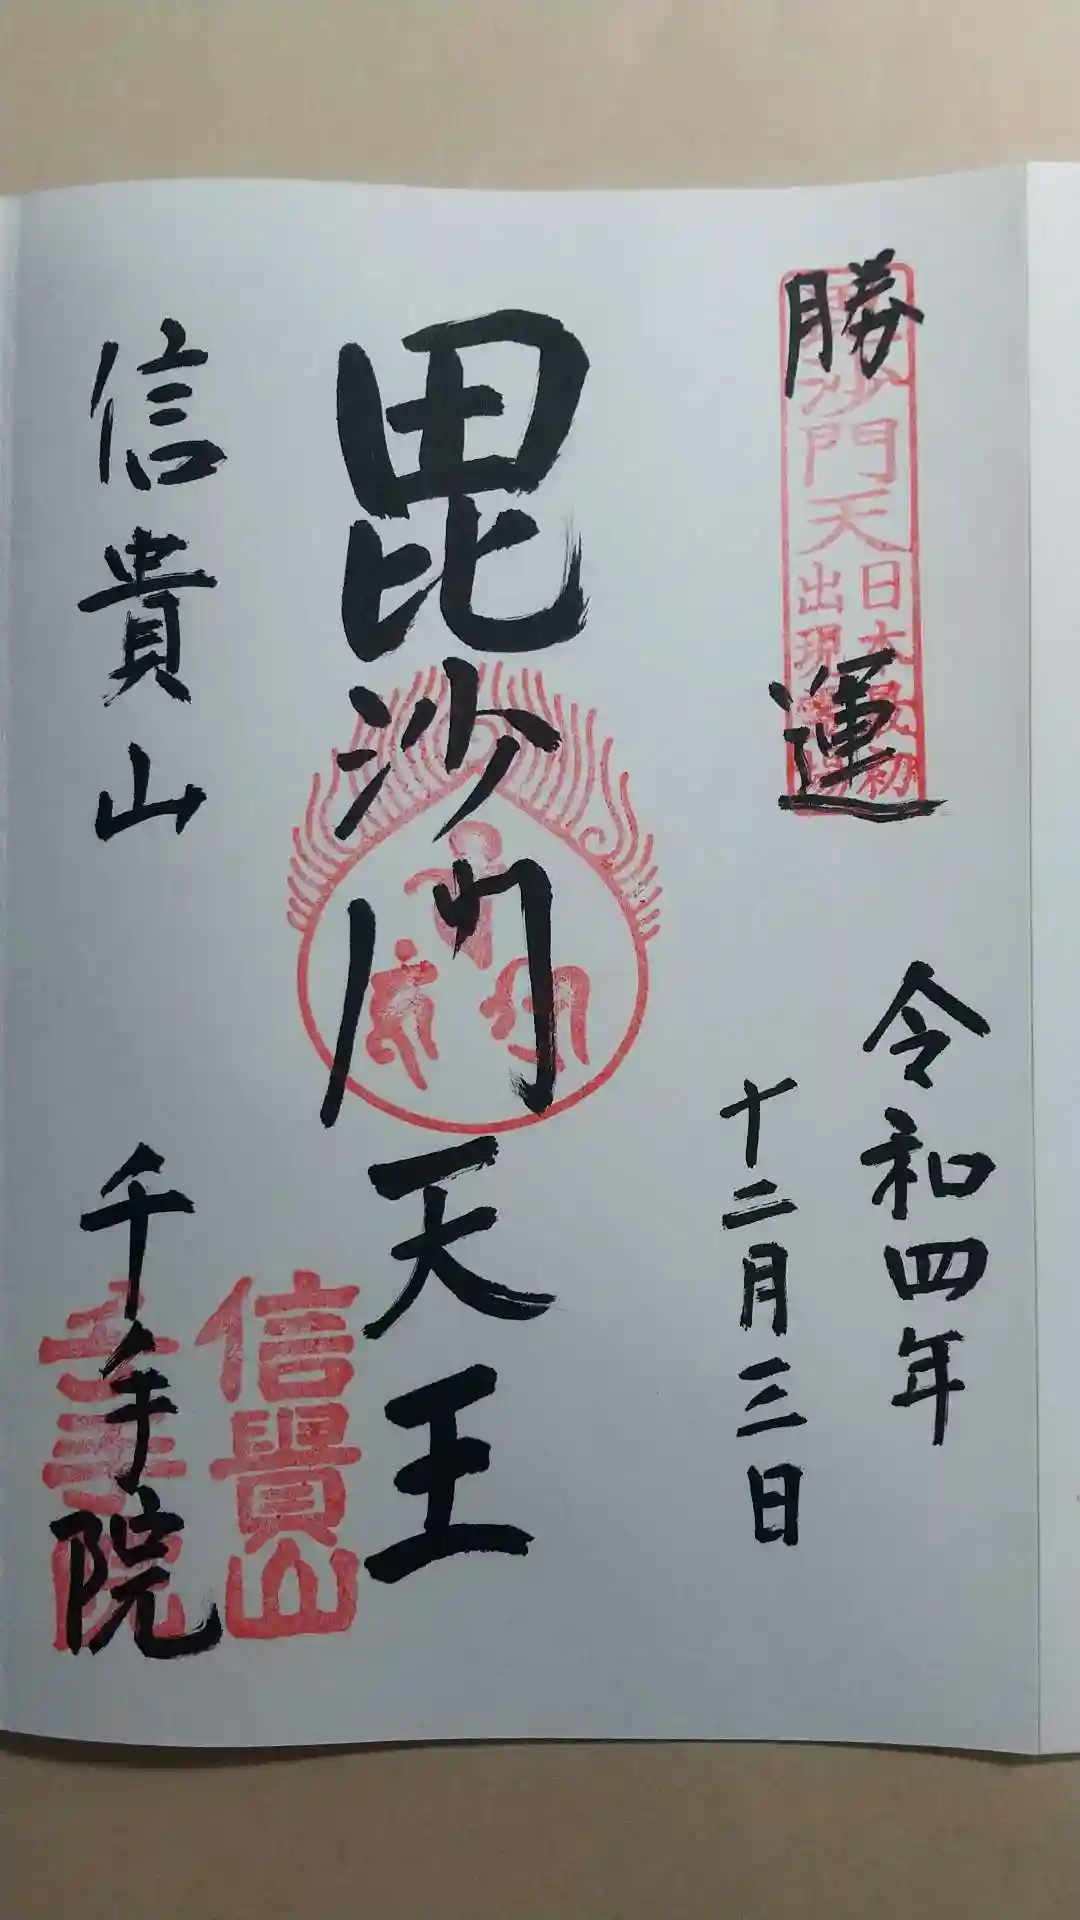 令和四年
十二月三日
勝運
毘沙門天
日本最初
出現霊場
毘沙門天王
信貴山
千手院
信貴山
千手院